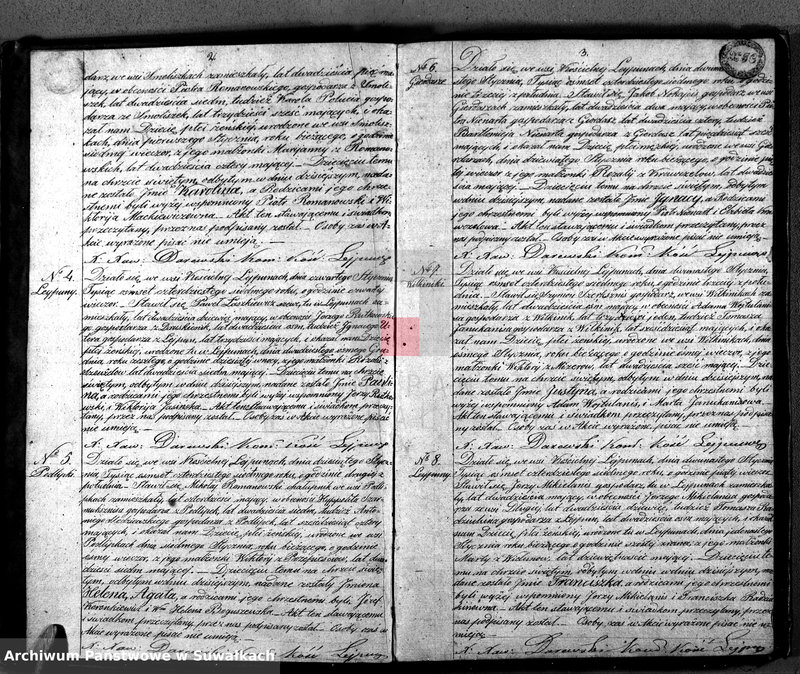 2.
darz, we wsi Smoliszkach zamieszkały, lat dwadzieścia pięć ma-
jący, w obecności Piotra Romanowskiego, gospodarza z Smoli-
szek, lat dwadzieścia siedm, tudzież Karola gospo-
darza ze Smoliszek, lat trzydzieści sześć mających, i oka-
zał nam Dziecię płci żeńskiej, urodzone we wsi Smolisz-
kach, dnia pierwszego Stycznia roku bieżącego, o godzinie
siódmej wieczór, z jego małżonki Maryanny z Romano-
wskich, lat dwadzieścia cztery mającej. — Dziecięciu temu
na chrzcie świętym, odbytym w dniu dzisiejszym, nada-
ne zostało Jmię Karolina, a Rodzicami jego chrze-
stnemi byli wyżej wspomniony Piotr Romanowski i Wi-
ktoryja Mackiewiczowna. — Akt ten stawającemu i świadkom
przeczytany, przez nas podpisany został. — Osoby zaś w A-
kcie wyrażone pisać nie umieją. —
X. Aaw: Darewski kom: Kość Lejpuny
No 4.
Lejpuny.
Działo się, we wsi Kościelnej Lejpunach, dnia czwartego Stycznia,
Tysiąc ośmset czterdziestego siódmego roku, o godzinie czwartej
wieczór. — Stawił się Paweł Laskiewicz tu w Lejpunach za-
mieszkały, lat dwadzieścia dziewięć mający, w obecności Jerzego
gospodarza z Druskienik, lat dwadzieścia ośm, tudzież Ignacego
gospodarza z Lejpun, lat trzydzieści mających, i okazał nam Dziecię
płci żeńskiej, urodzone tu w Lejpunach, dnia dwudziestego ósmego Gru-
dnia, roku zeszłego, o godzinie dziesiątej w nocy, z jego małżonki
lat dwadzieścia siedm mającej. Dziecięciu temu na chrzcie
świętym, odbytym w dniu dzisiejszym, nadane zostało Jmię
a rodzicami jego chrzestnemi byli wyżej wspomniony Jerzy
i Wiktorja Jasinska. — Akt ten stawającemu i świadkom przeczy-
tany, przez nas podpisany został. — Osoby zaś w Akcie wyrażone pi-
sać nie umieją. —
X. Aaw: Darewski kom: Kość Lejpuny
No 5.
Podlipki.
Działo się, we wsi Kościelnej Lejpunach, dnia dziesiątego Stycz-
nia, Tysiąc ośmset czterdziestego siódmego roku, o godzinie drugiej z
południa. — Stawił się Mikołaj Romanowski chałupnik we wsi Podli-
pkach zamieszkały, lat czterdzieści mający, w obecności Hyppolita
gospodarza z Podlipek, lat dwadzieścia siedm, tudzież Anto-
niego gospodarza z Podlipek, lat sześćdziesiąt cztery
mających, i okazał nam Dziecię płci żeńskiej, urodzone we wsi
Podlipkach dnia siódmego Stycznia, roku bieżącego, o godzinie
ósmej wieczór, z jego małżonki Wiktoryi z lat dwa-
dzieścia siedm mającej. — Dziecięciu temu na chrzcie świę-
tym, odbytym w dniu dzisiejszym, nadane zostały Jmiona
Helena, Agata, a rodzicami jego chrzestnemi byli, Józef
i Helena Boguszewska. — Akt ten stawającemu i
świadkom przeczytany, przez nas podpisany został. — Osoby zaś w
Akcie wyrażone pisać nie umieją. —
X. Aaw: Darewski kom: Kość Lejpuny
3.
No 6.
Giedasze
Działo się, we wsi Kościelnej Lejpunach, dnia dwuna-
stego Stycznia, Tysiąc ośmset czterdziestego siódmego roku, o godzi-
nie trzeciej z południa. — Stawił się Jakób gospodarz we wsi
zamieszkały, lat dwadzieścia dwa mający, w obecności Pio-
tra gospodarza z lat dwadzieścia cztery, tudzież
Bartłomieja gospodarza z lat pięćdziesiąt sześć
mających, i okazał nam Dziecię płci męzkiej, urodzone we wsi
dnia dziewiątego Stycznia roku bieżącego, o godzinie pią-
tej wieczór z jego małżonki Rozalji z lat dwadzie-
ścia mającej. — Dziecięciu temu na chrzcie świętym, odbytym
w dniu dzisiejszym, nadane zostało Jmię Jgnacy, a Rodzicami
jego chrzestnemi byli wyżej wspomniony Piotr i Elżbieta
Akt ten stawającemu i świadkom przeczytany, przez
nas podpisany został. — Osoby zaś w Akcie wyrażone pisać nie umieją. —
X. Aaw: Darewski kom: Kość Lejpuny
No 7.
Wilkiniki
Działo się, we wsi Kościelnej Lejpunach, dnia dwunastego Stycznia,
Tysiąc ośmset czterdziestego siódmego roku, o godzinie trzeciej z połu-
dnia. — Stawił się Szymon gospodarz we wsi Wilkinikach za-
mieszkały, lat dwadzieścia ośm mający, w obecności Adama
gospodarza z Wilkinik, lat trzydzieści jeden, tudzież Tomasza
gospodarza z Wilkinik, lat sześćdziesiąt mających, i oka-
zał nam Dziecię płci żeńskiej, urodzone we wsi Wilkinikach, dnia
ósmego Stycznia, roku bieżącego o godzinie ósmej wieczór, z jego
małżonki Wiktoryi z lat dwadzieścia sześć mającej. — Dzie-
cięciu temu na chrzcie świętym, odbytym w dniu dzisiejszym, na-
dane zostało Jmię Justyna, a rodzicami jego chrzestnemi byli
wyżej wspomniony Adam i Marta
Akt ten stawającemu i świadkom przeczytany, przez nas podpisa-
ny został. — Osoby zaś w Akcie wyrażone pisać nie umieją.
X. Aaw: Darewski kom: Kość Lejpuny
No 8.
Lejpuny.
Działo się, we wsi Kościelnej Lejpunach, dnia dwunastego Stycznia,
Tysiąc ośmset czterdziestego siódmego roku, o godzinie piątej wieczór.
Stawił się, Jerzy Mikielanis gospodarz, tu w Lejpunach zamieszka-
ły, lat dwadzieścia mający, w obecności Jerzego Mikielanisa gospoda-
rza ze wsi lat dwadzieścia dziewięć, tudzież Tomasza
gospodarza z Lejpun, lat dwadzieścia ośm mających, i okazał
nam Dziecię, płci żeńskiej, urodzone tu w Lejpunach, dnia jedenastego
Stycznia roku bieżącego o godzinie z jego małżonki
Marty z lat dwadzieścia mającej. — Dziecięciu te-
mu na chrzcie świętym, odbytym w dniu dzisiejszym, na-
dane zostało Jmię Franciszka, a rodzicami jego chrzestnemi
byli wyżej wspomniony Jerzy Mikielanis i Franciszka
Akt ten stawającemu i świadkom przeczytany, przez
nas podpisany został. — Osoby zaś w Akcie wyrażone pisać nie u-
mieją.
X. Aaw: Darewski kom: Kość Lejpuny
Archiwum Państwowe w Suwałkach